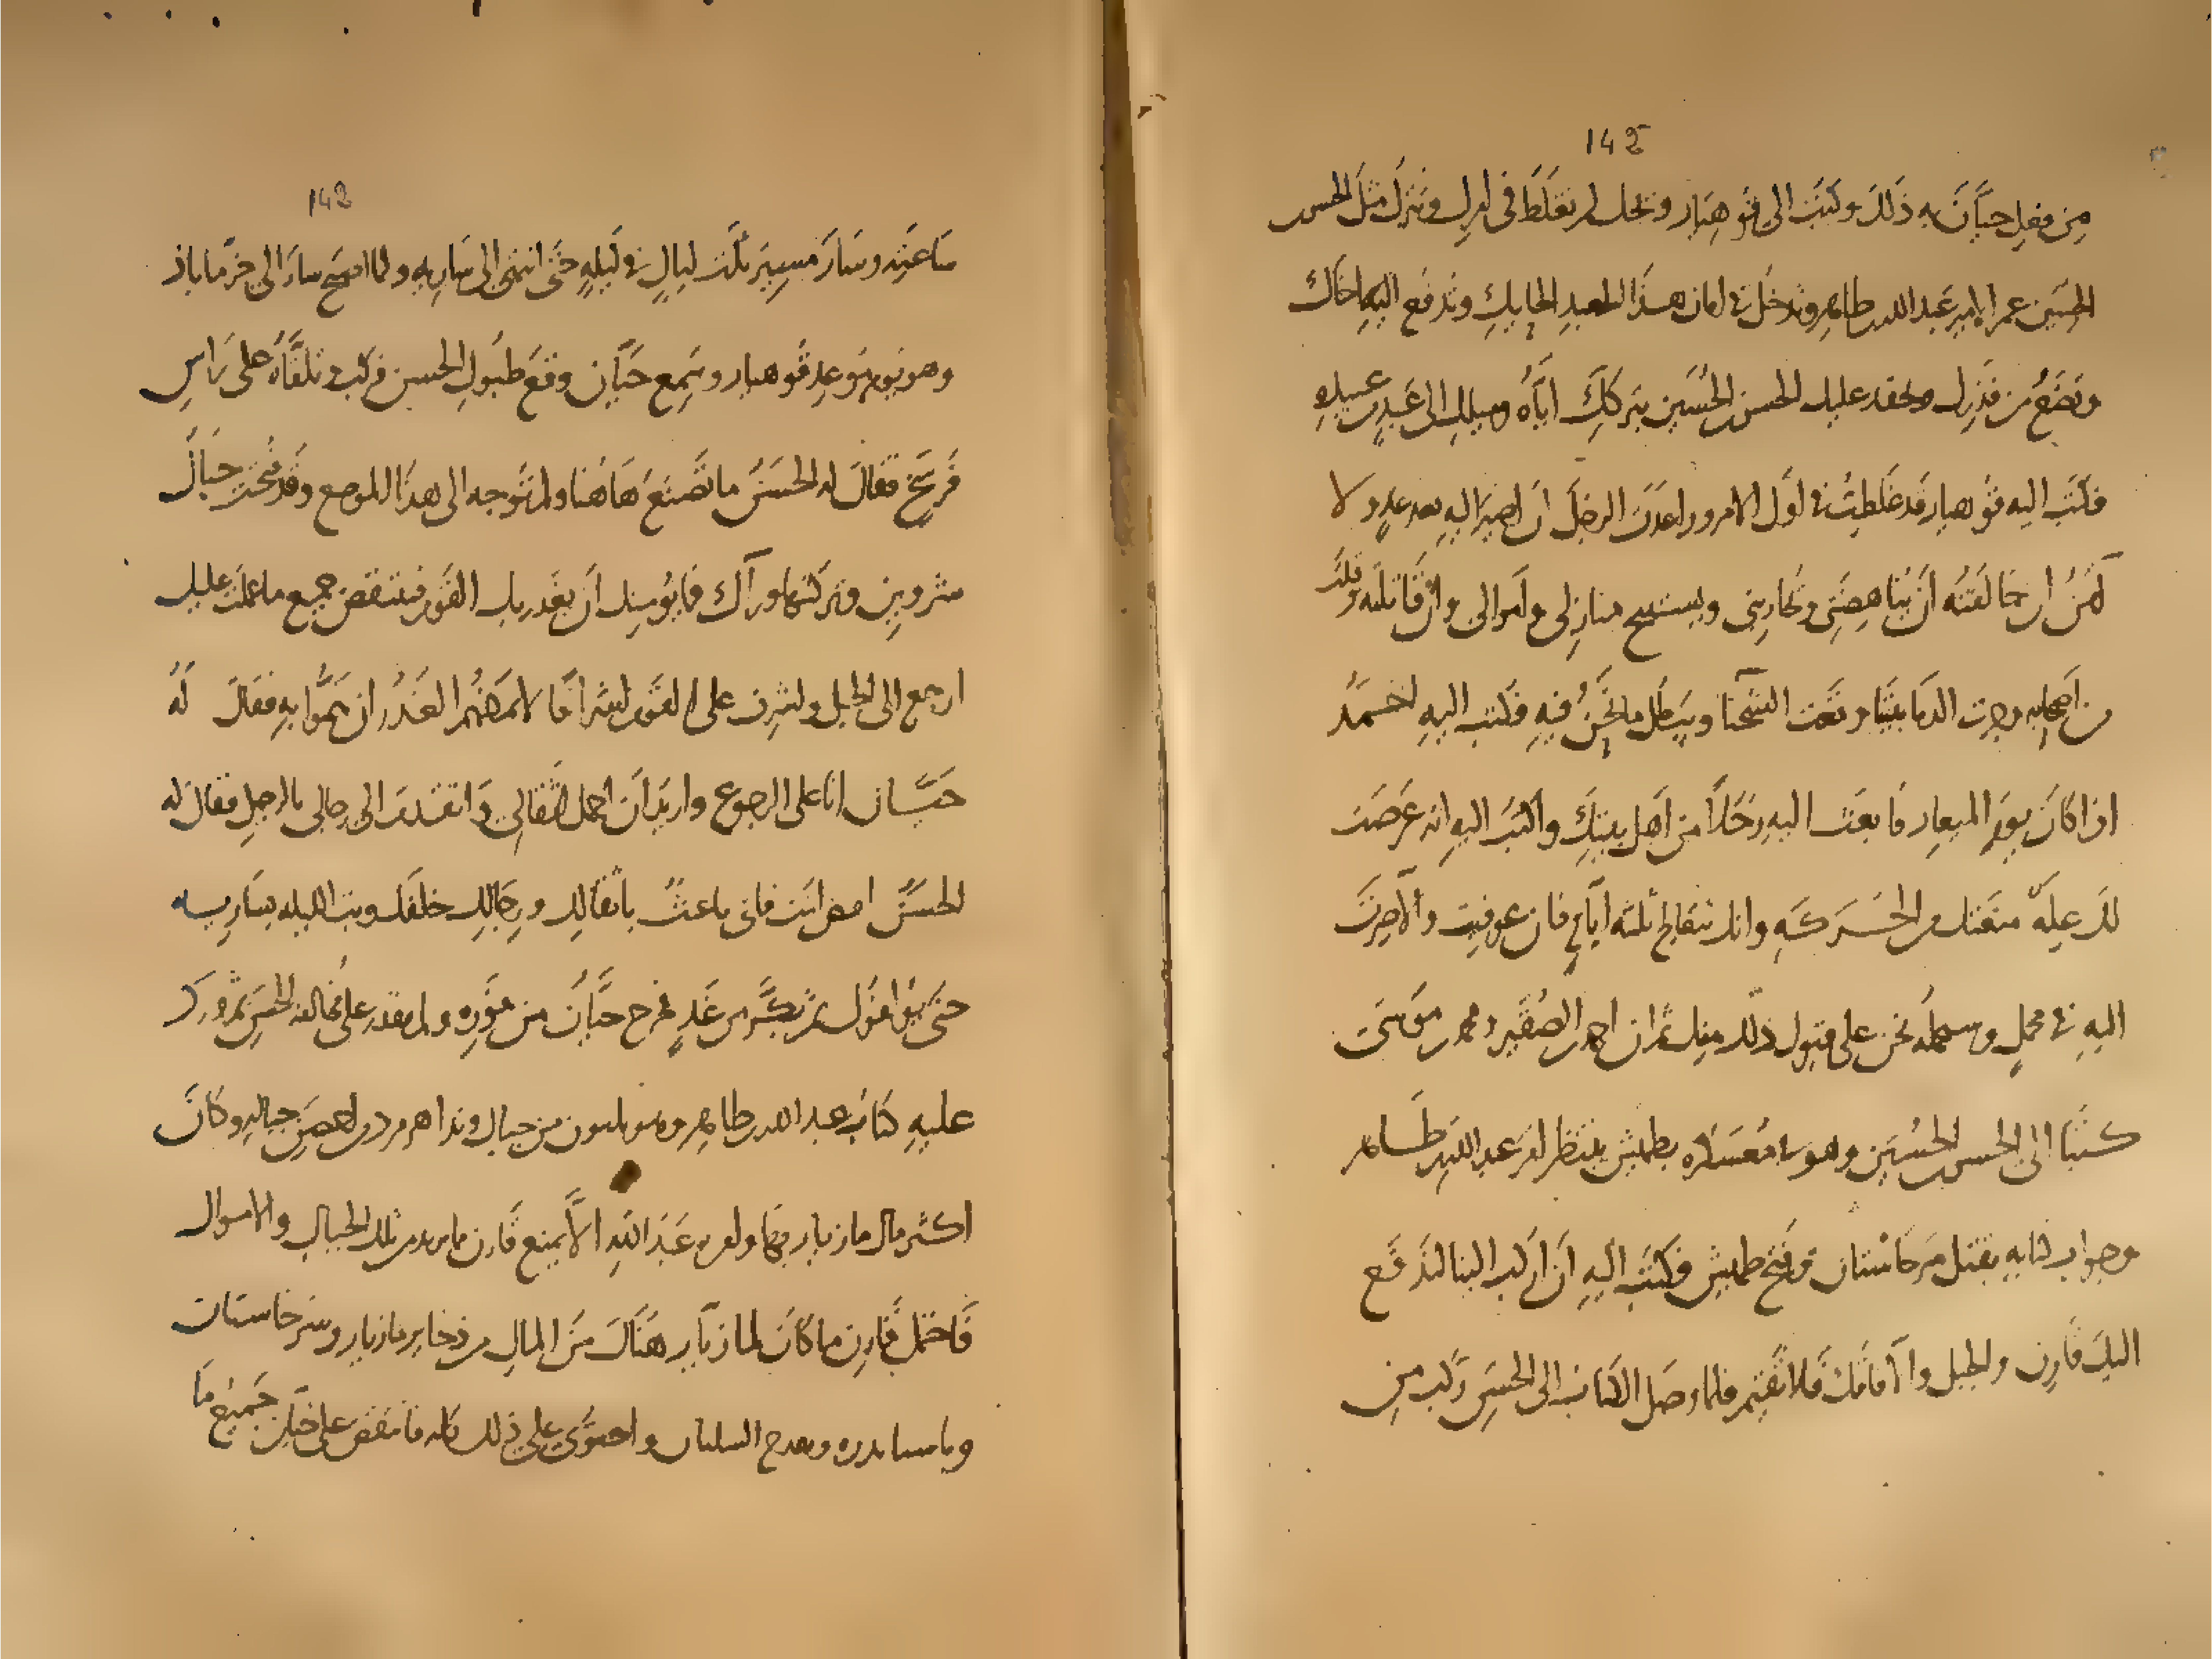 142
من فعل حيان به ذلك وكتب الى قوهيار ويحك لم تغلط في امرك وتترك مثل الحسن
الحسين عم الامير عبد الله بن طاهر وتدخل في امان هذا العبد الحايك وتدفع اليه اخاك
وتضع من قدرك ويحقد عليك الحسن بن الحسين بتركك اياه وميلك الى عبد من عبيده
فكتب اليه قوهيار قد غلطت في اول الامر وواعدت الرجل ان اصير اليه بعد غد ولا
آمن ان خالفته ان يناهضني ويحاربني ويستبيح منازلي واموالي وان قاتلته وقتلت
من اصحابه وجرت الدما بيننا وقعت الشحنا ويبطل ما نحن فيه فكتب اليه احمد
اذا كان يوم الميعاد فابعث اليه رجلا من اهل بيتك واكتب اليه انه عرضت
لك علة منعتك من الحركه وانك تتعالج ثلثه ايام فان عوفيت والا صرت
اليه في محمل وسنحمله نحن على قبول ذلك منك ثم ان احمد بن الصقير ومحمد بن موسى
كتبا الى الحسن بن الحسين وهو في معسكره بطميش ينتظر امر عبد الله بن طاهر
وجواب كتابه بقتل سرخاستان وفتح طميش فكتبا اليه ان اركب الينا لندفع
اليك قارن والجبل والا فاتك فلا تقم فلما وصل الكتاب الى الحسن ركب من
143
ساعته وسار مسير ثلث ليال في ليله حتى انتهى الى ساريه ولما اصبح سار الى خرماباذ
وهو يوم موعد قوهيار وسمع حيان وقع طبول الحسن فركب وتلقاه على راس
فرسخ فقال له الحسن ما تصنع هاهنا ولم توجه الى هذا الموضع وقد فتحت جبال
شروين وتركتها وراك فما يومنك ان يغدر بك القوم فينتقض جميع ما عملت عليك
ارجع الى الجبل واشرف على القوم اشرافا لا يمكنهم الغدر ان هموا به فقال له
حيان انا على الرجوع واريد ان احمل اثقالي واتقدم الى رجالي بالرحل فقال له
الحسن امض انت فاني باعث باثقالك ورجالك خلفك وبت الليله بساريه
حتى يوافوك ثم تبكر من غد فخرج حيان من فوره ولم يقدر على مخالفه الحسن ثم ورد
عليه كتاب عبد الله بن طاهر وهو بلبورة من جبال ونداهرمز وهي احصن جباله وكان
اكثر مال مازيار بها وامره عبد الله الا يمنع قارن ما يريد من تلك الجبال والاموال
فاحتمل قارن ما كان لمازيار هناك من المال من ذخاير مازيار وسرخاستان
وباسباندره وبقدح السلتان واحتوى على ذلك كله فانتقض على حيان جميع ما